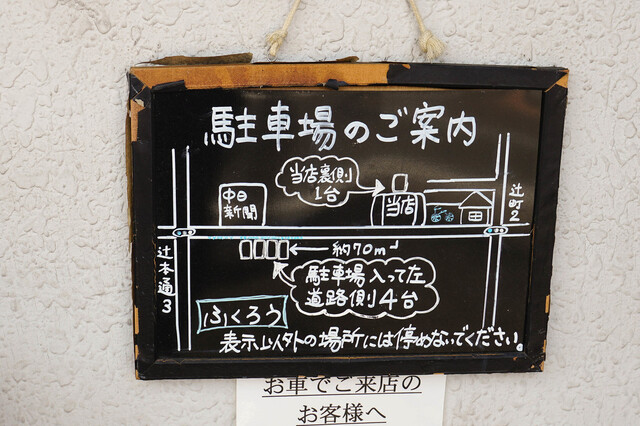 駐車場のご案内
当店裏側
1台
中日
新聞
当店
辻町2
約70m
辻本通3
駐車場入って左
道路側4台
ふくろう
表示以外の場所には停めないでください。
お車でご来店の
お客様へ